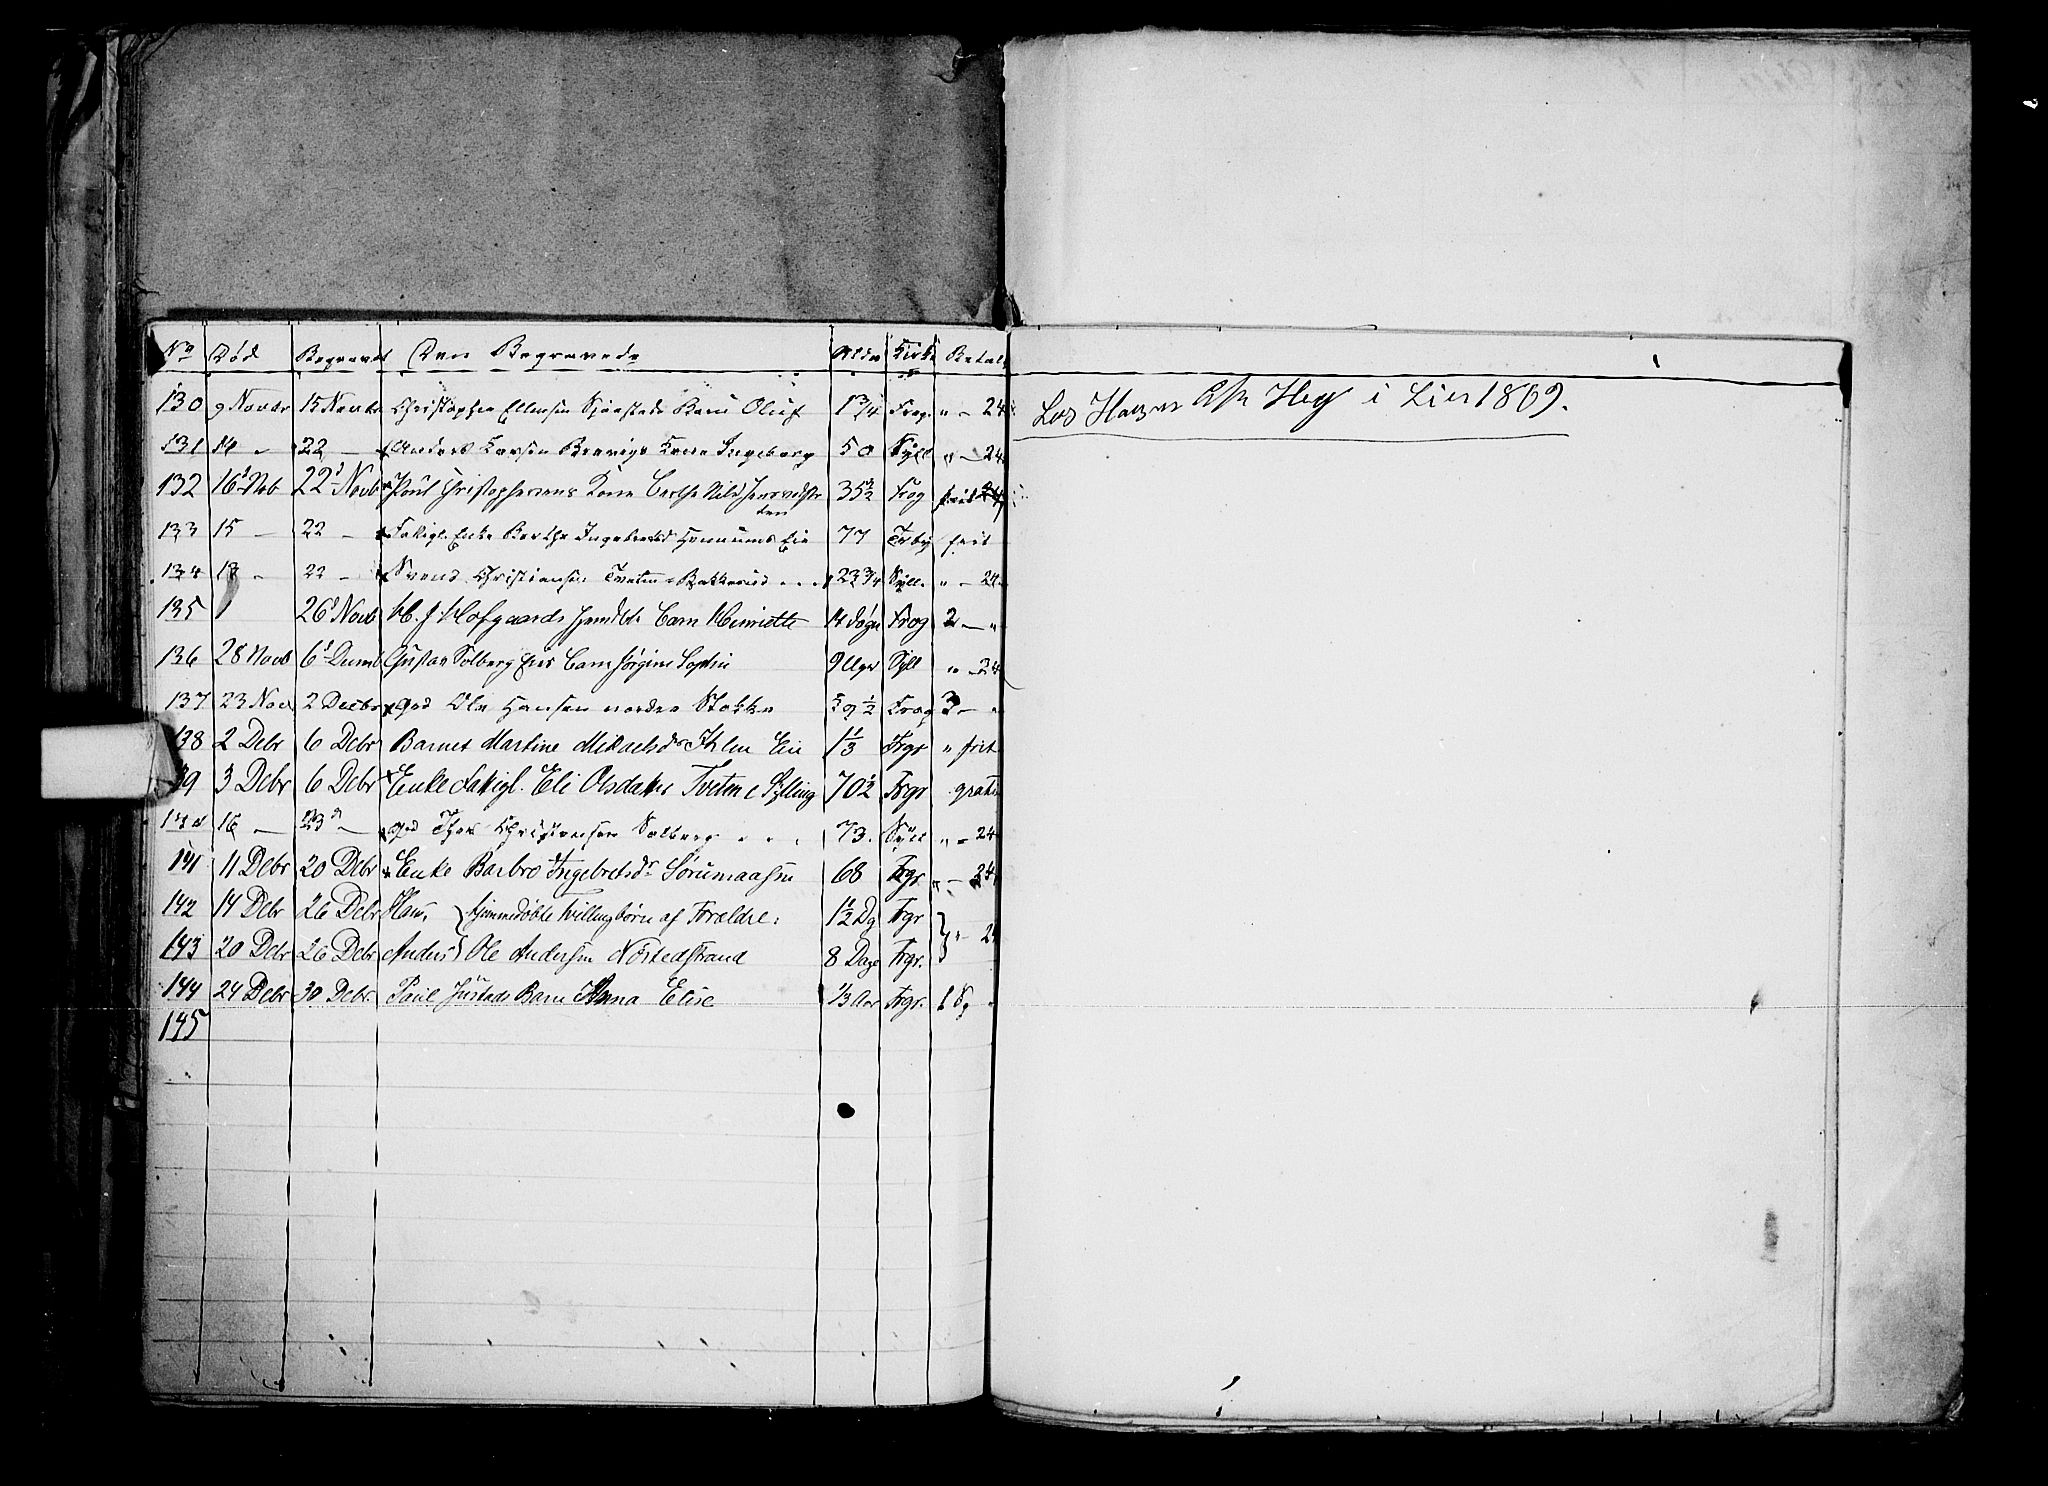 No Død Begravet Den Begravede Alder Kirke Betalt
130 9 Novbr 15 Novbr Christopher Ellensen Sjøstads Barn Oluf 1 3/4 Frog. " - 24
131 14 " 22 - Anders Larsen Kone Ingeborg 50 Syll " - 24
132 16 Nob 22 Novb Poul Christophersens Kone Berthe Nilsd 35 1/2 Frog frit 24
133 15 - 22 - Fattigl. Enke Berthe Ingebretsd Hennums Eie 77 Torby frit
134 18 " 22 - Svend Christiansen Tveten = Bakkerud 23 3/4 Syll. " - 24
135 26 Novb H. J. Hofgaards Barn Henriette 14 Døgn Frog 2 - "
136 28 Novb 6 Gustav Solberg Eies Barn Jørgine Sophie 9 Uger Syll " 24
137 23 Nov 2 Decbr Ole Hansen nordre Stokke 59 1/2 Frog 3 - "
138 2 Debr 6 Debr Barnet Martine Mikaelsdr Ihlen Eie 1 1/3 Frgr " frit
139 3 Debr 6 Debr Enke Fattigl. Eli Olsdatter Tveten i Sylling 70 1/2 Frgr gratis
16 - 23 - Christensen Solberg 73. Syll " - 24
141 11 Debr 20 Debr Enke Barbro Ingebretsdr Sørumaasen 68 Frgr " - 24
142 14 Debr 26 Debr Hans, hjemmedøbte Tvillingbørn af Forældre: 1 1/2 Dg Frgr
143 20 Debr 26 Debr Anders Ole Andersen Nøstedstrand 8 Dage Frgr. " - 24
144 24 Debr 30 Debr. Paul Justads Barn Anna Elise 1/3 Aar Frgr. 1 Sp "
145
Hos Hansen Heg i Lier 1869.